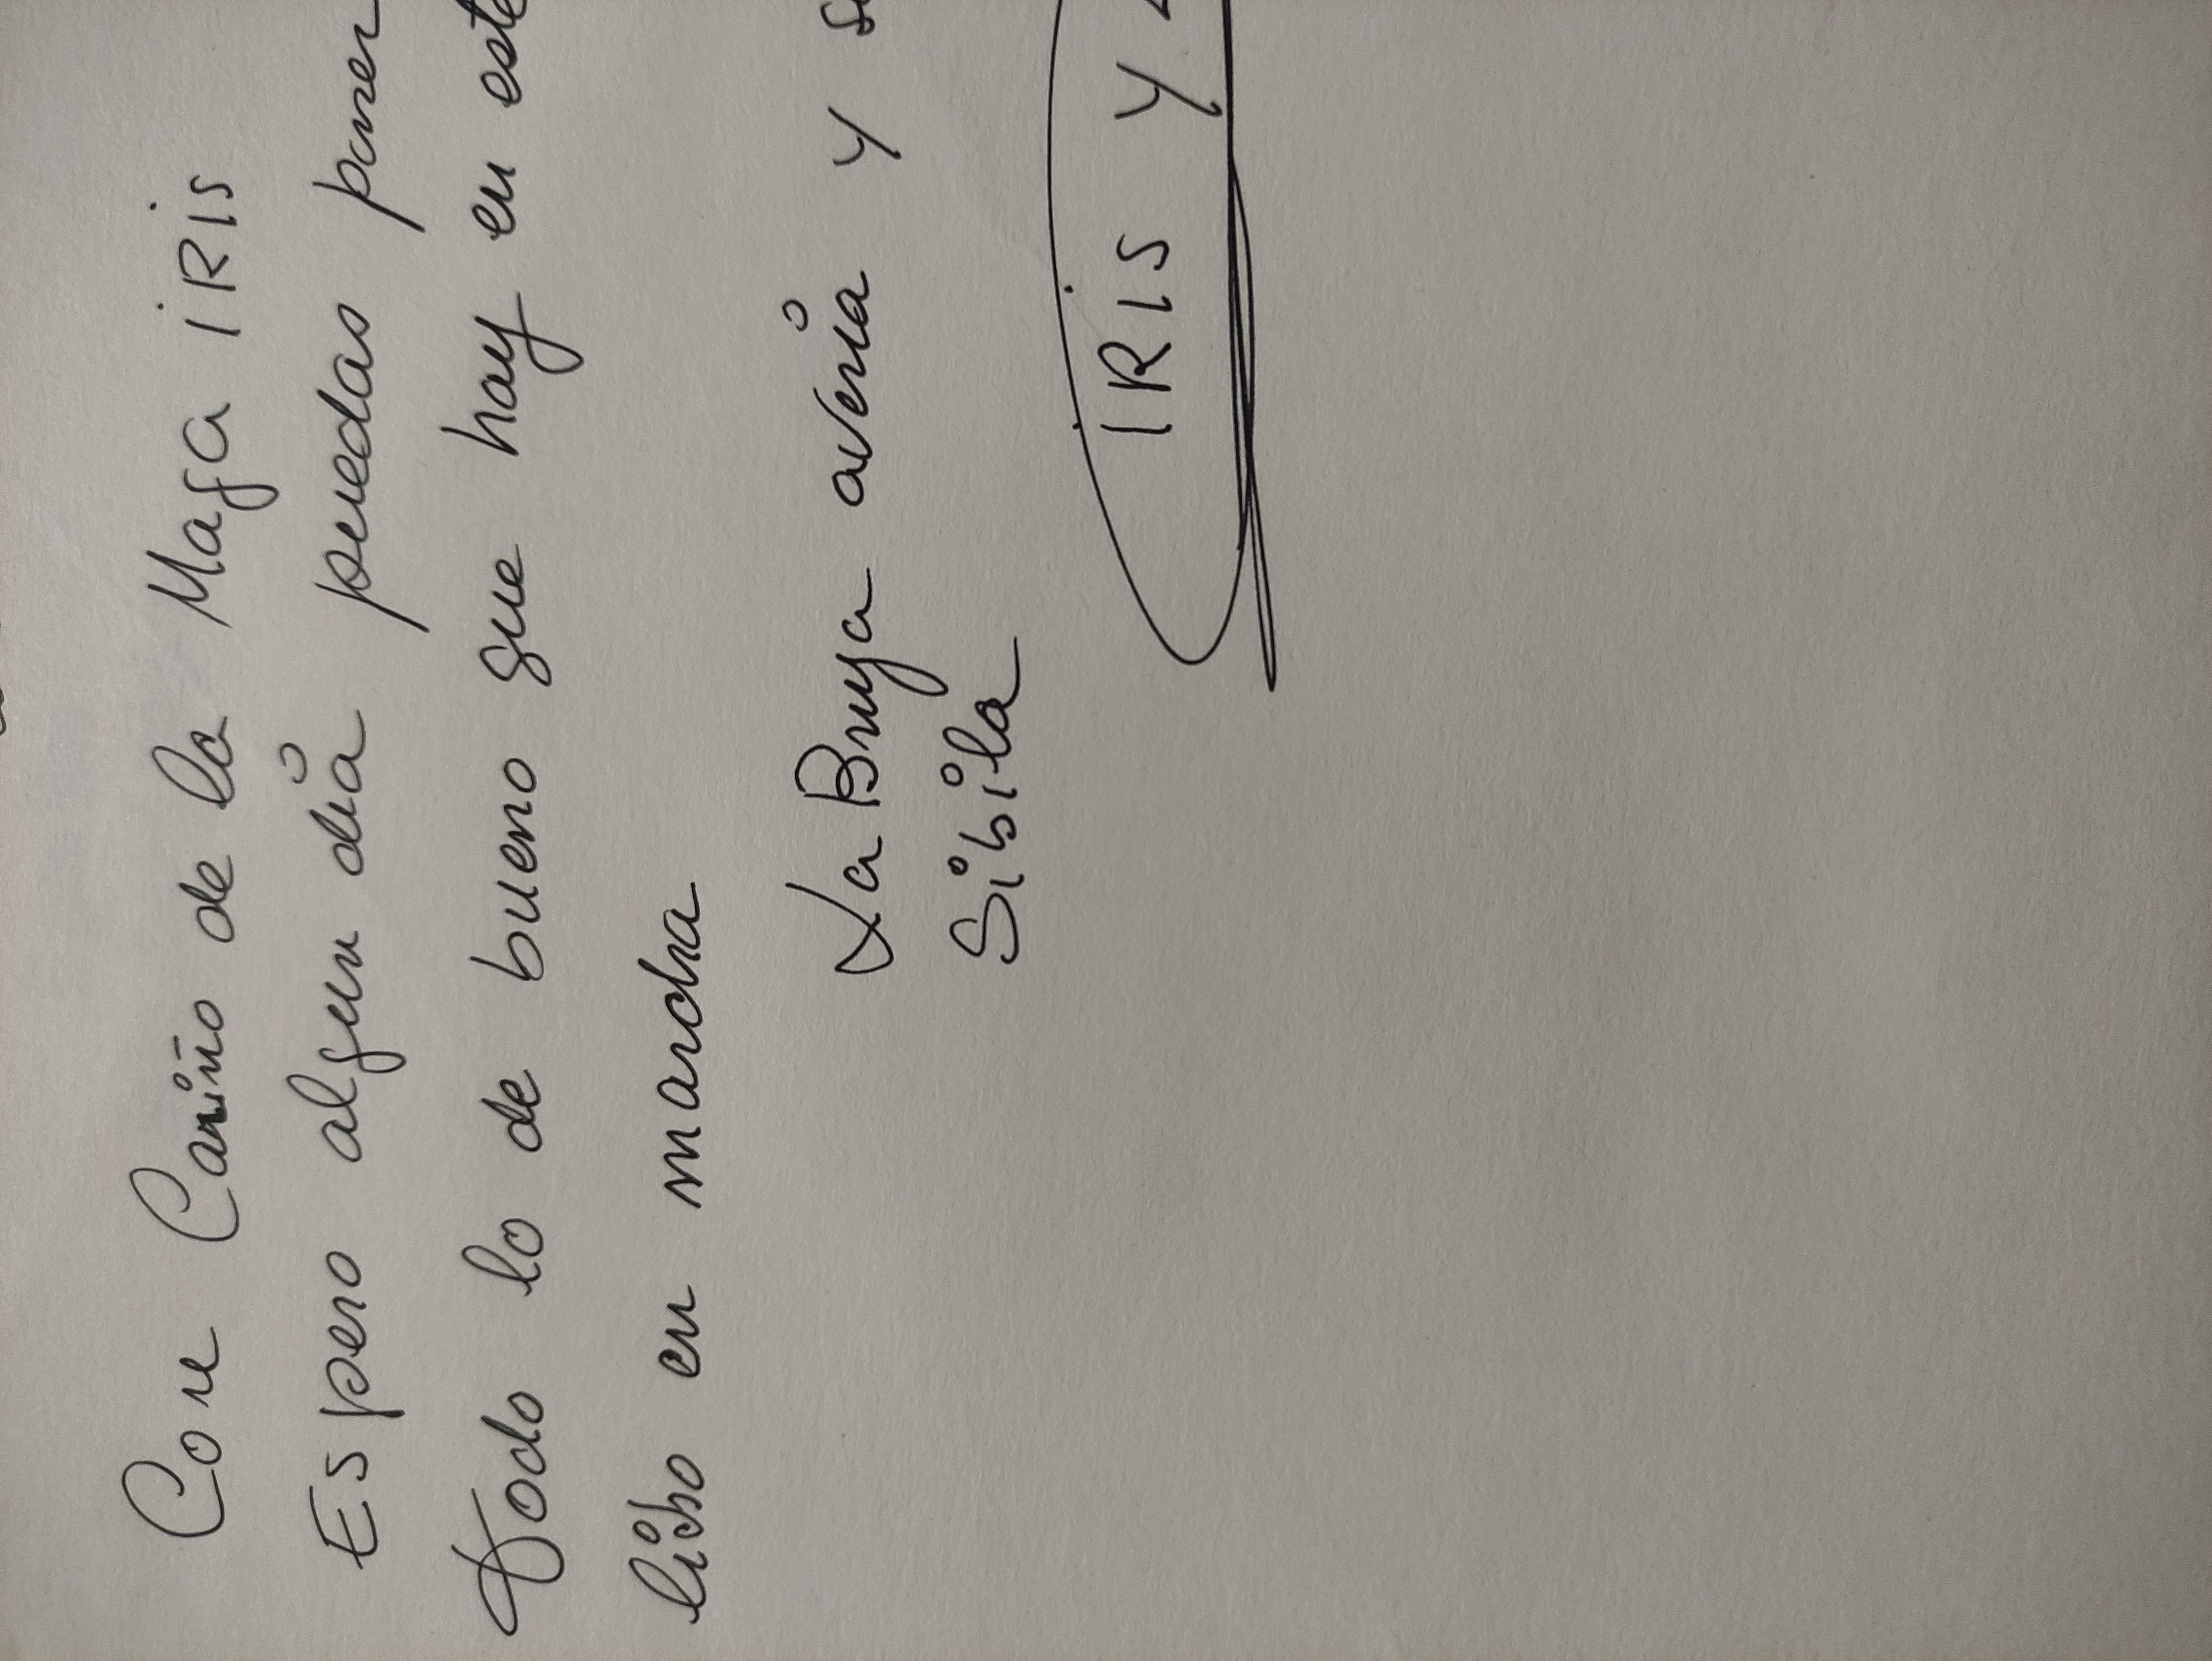 Con Cariño de la Maga IRis
Espero algun día puedas poner
todo lo de bueno que hay en este
libro en marcha
La Bruja avería y
Sibila
IRis Y